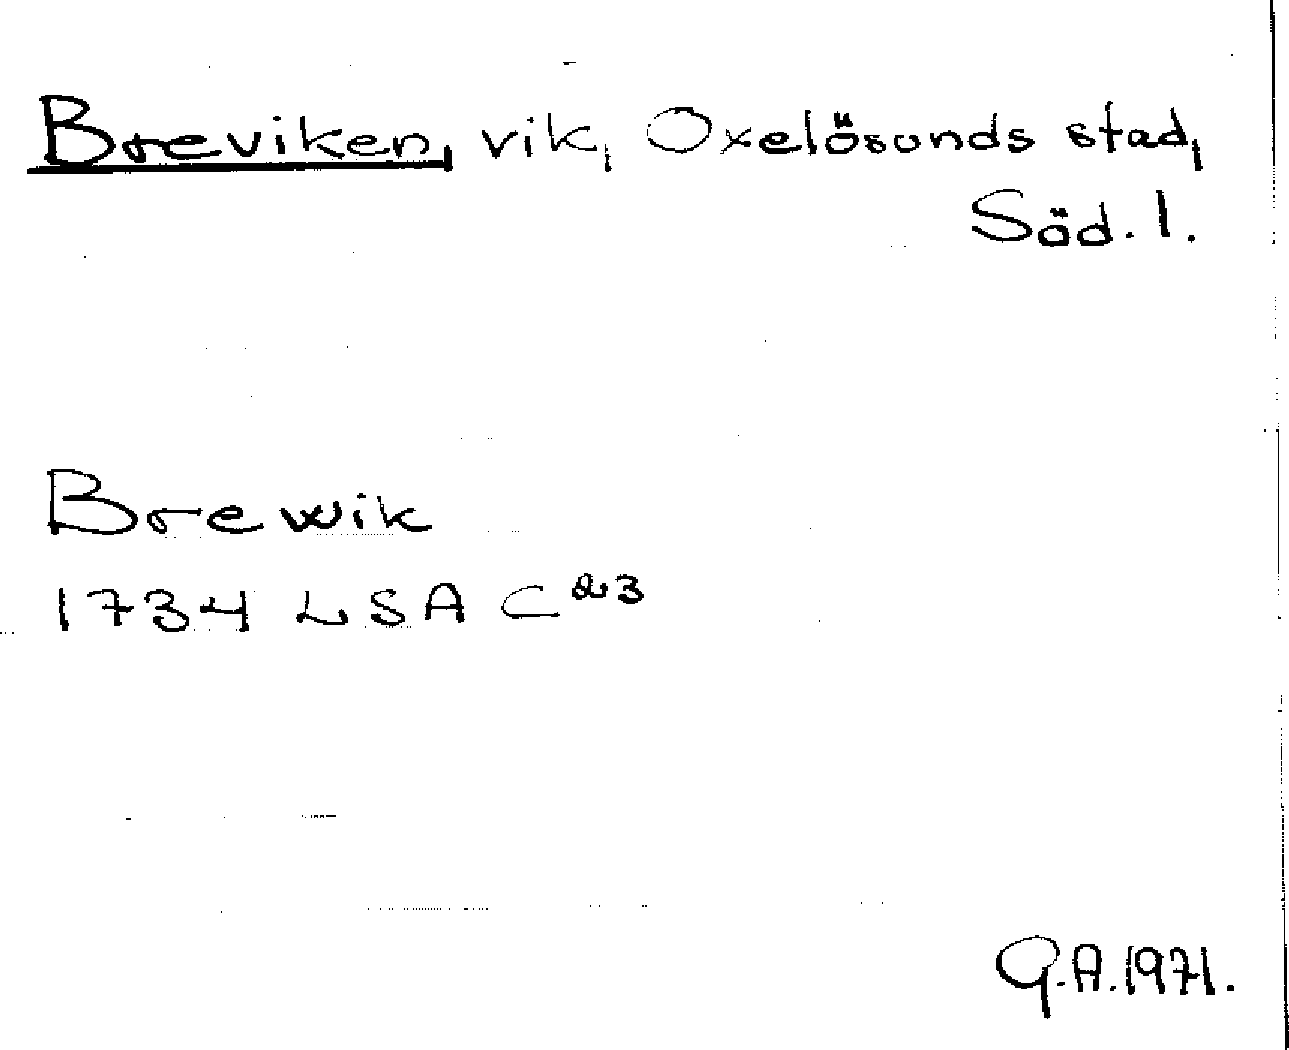 Breviken, vik, Oxelösunds stad,
Söd. l.
Brewik
1734 LSA C²³
G.A. 1971.